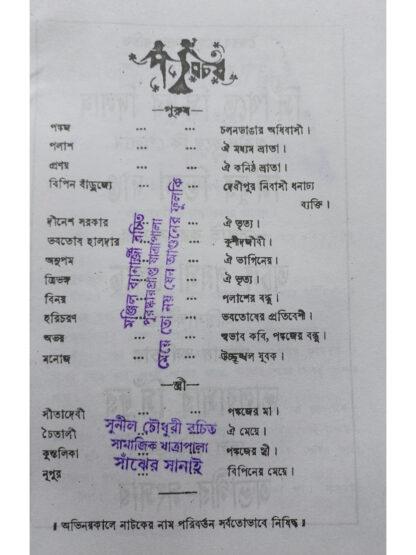 পরিচয়
—পুরুষ—
পঙ্কজ ... ... চলনডাঙার অধিবাসী।
পলাশ ... ... ঐ মধ্যম ভ্রাতা।
প্রণয় ... ... ঐ কনিষ্ঠ ভ্রাতা।
বিপিন বাঁড়ুজ্যে ... ... দেবীপুর নিবাসী ধনাঢ্য
ব্যক্তি।
দীনেশ সরকার ... ... ঐ ভৃত্য।
ভবতোষ হালদার ... ... কুশীদজীবী।
অনুপম ... ... ঐ ভাগিনেয়।
ত্রিভঙ্গ ... ... ঐ ভৃত্য।
বিনয় ... ... পলাশের বন্ধু।
হরিচরণ ... ... ভবতোষের প্রতিবেশী।
অভয় ... ... স্বভাব কবি, পঙ্কজের বন্ধু।
মনোজ ... ... উচ্ছৃঙ্খল যুবক।
মঞ্জিল ব্যানার্জী রচিত
পুরস্কারপ্রাপ্ত যাত্রাপালা
মেয়ে তো নয় যেন আগুনের ফুলকি
—স্ত্রী—
সীতাদেবী ... ... পঙ্কজের মা।
চৈতালী ... ... ঐ মেয়ে।
কুন্তলিকা ... ... পঙ্কজের স্ত্রী।
নূপুর ... ... বিপিনের মেয়ে।
সুনীল চৌধুরী রচিত
সামাজিক যাত্রাপালা
সাঁঝের সানাই
॥ অভিনয়কালে নাটকের নাম পরিবর্তন সর্বতোভাবে নিষিদ্ধ ॥